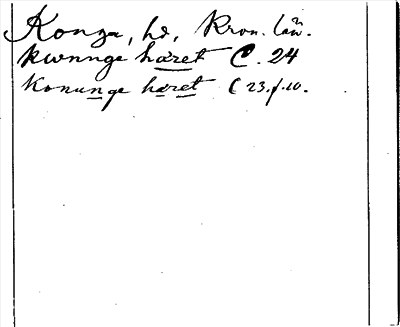 Konga, hd, Kron. län.
kwnnge hæret C. 24
Konunge hæret C 23, f. 10.